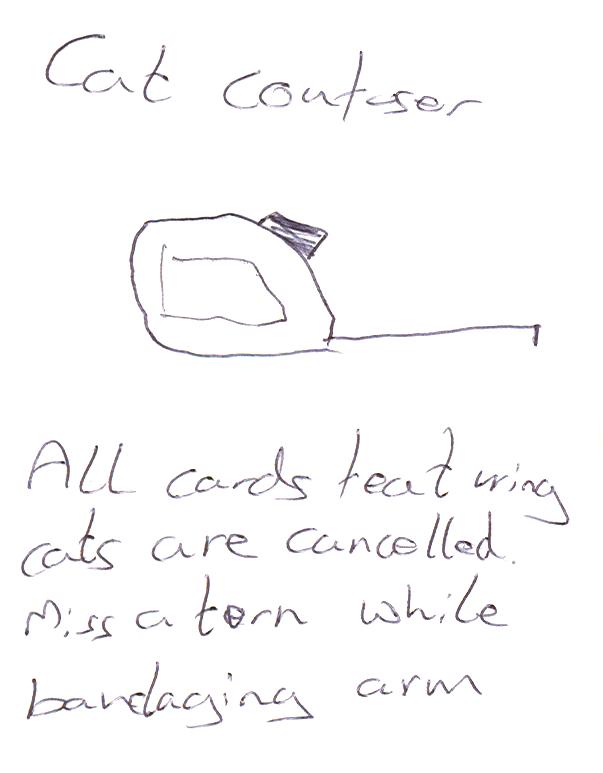 Cat confuser
All cards featuring
cats are cancelled.
Miss a turn while
bandaging arm